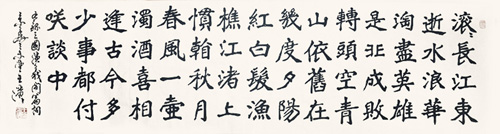 滾〻長江東
逝水浪華
淘盡英雄
是非成敗
轉頭空青
山依舊在
幾度夕陽
紅白髮漁
樵江渚上
慣翰秋月
春風一壺
濁酒喜相
逢古今多
少事都付
咲談中
三國演義開篇詞